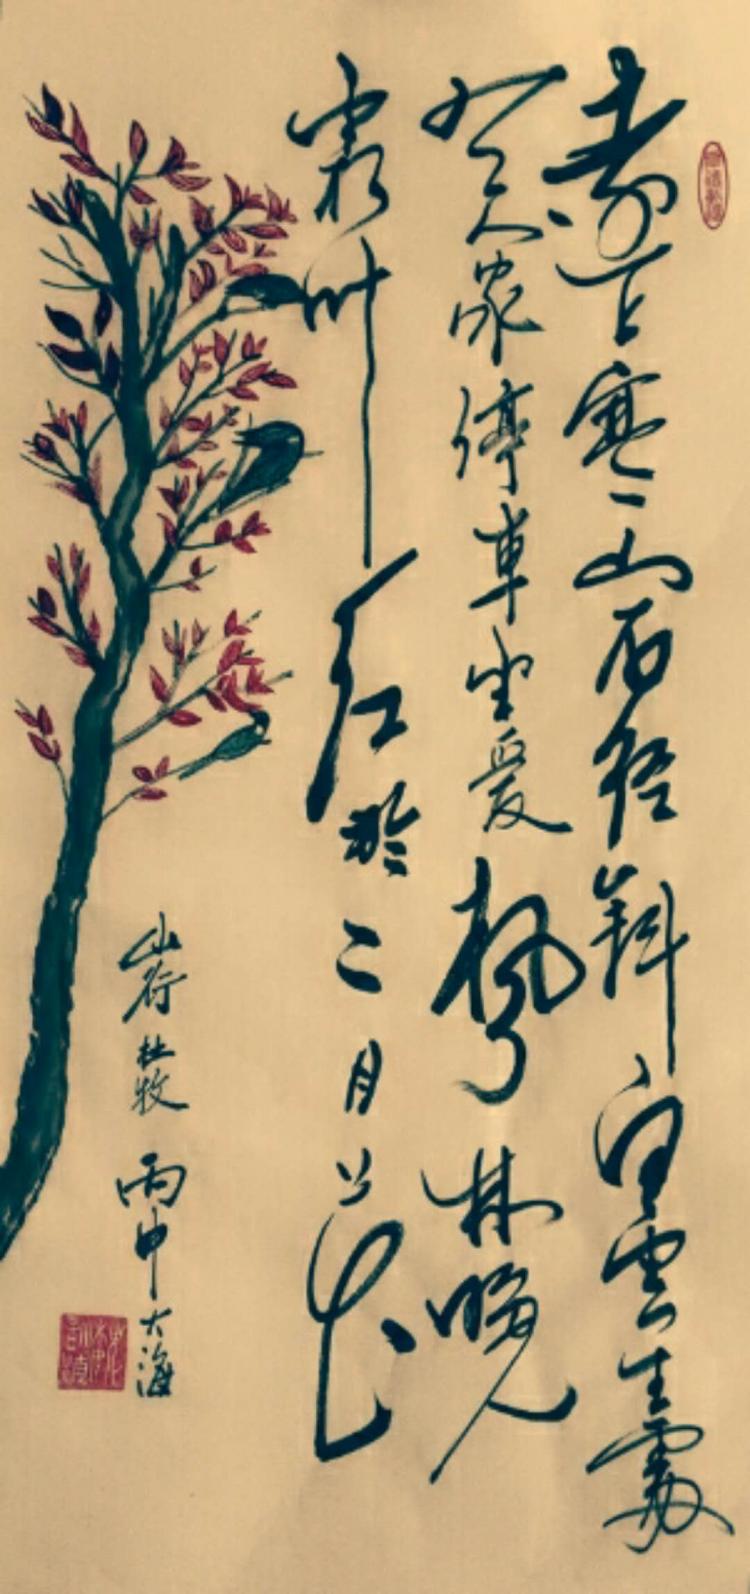 遠上寒山石径斜白雲生處
有人家停車坐爱枫林晚
霜叶红於二月花
山行 杜牧 丙申 大海